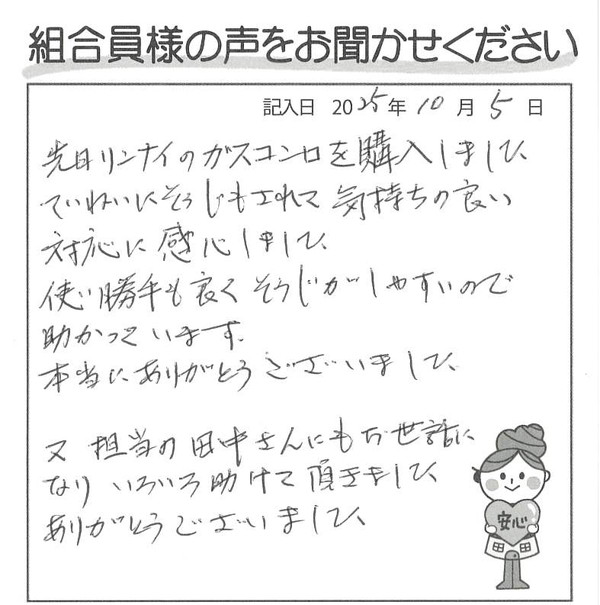 組合員様の声をお聞かせください
記入日 2025年10月5日
先日リンナイのガスコンロを購入しました、
ていねいにそうじもされて気持ちの良い
対応に感心しました、
使い勝手も良くそうじがしやすいので
助かっています。
本当にありがとうございました、
又 担当の田中さんにもお世話に
なり いろいろ助けて頂きました、
ありがとうございました、
安心